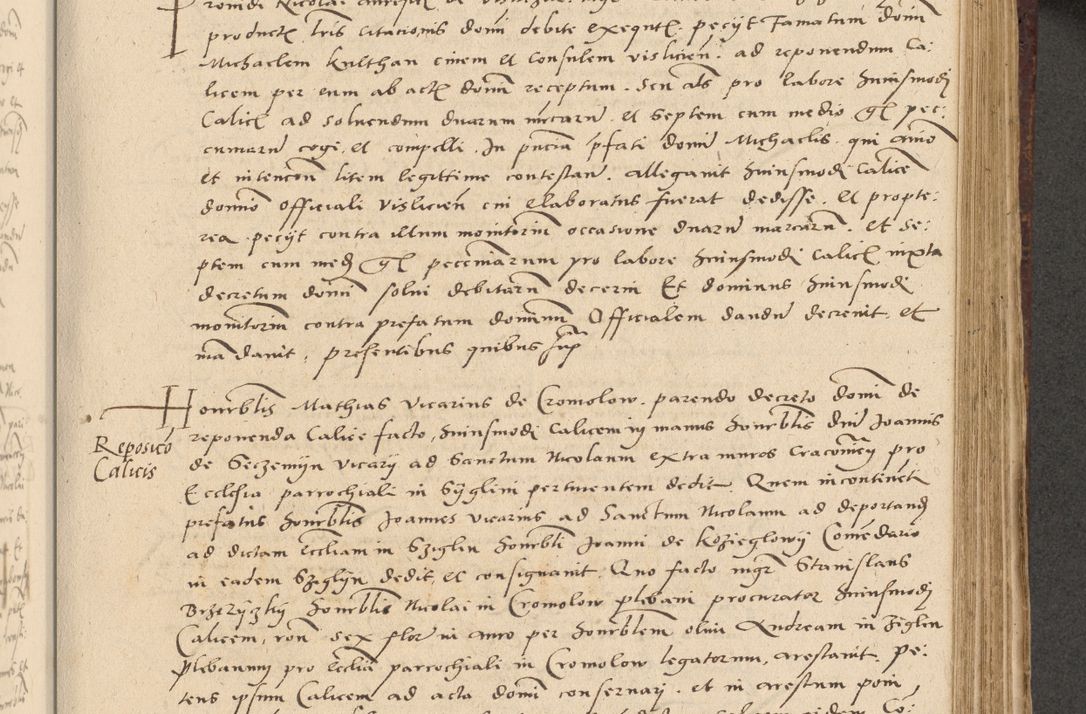 productis litteris citacionis domini debite exequtis peciit Famatum domi
Michaelem Kulthan civem et consulem vislicien. ad reponendum Ca:
licem per eum ab actis domini receptum. Seu als pro labore huiusmodi
Calicis ad solvendum duarum mrcarum. et Septem cum medio gr pec:
cuniarum cogi. et compelli. In pncia pfati domini Michaelis. qui animo
et intencion litem legittime contestan. allegavit huiusmodi Calice
domino officiali vislicien cui elaboratus fuerat dedisse. et propte:
rea peciit contra illum monitorium occasione duarum marcarum. et se:
ptem cum medio gr peccuniarum pro labore huiusmodi Calicis iuxta
decretum domini solvi debitarum decerni Et dominus huiusmodi
monitorium contra prefatum dominum Officialem dandum decrevit. et
mandavit, presentibus quibus supra
Honorblis Mathias vicarius de Cromolow. parendo decreto domini de
reponenda Calice facto, huiusmodi Calicem in manus honorblis dni Joannis
Reposico
Calicis
de Seczemijn vicarij ad Sanctum Nicolaum extra muros Cracovien pro
Ecclesia parrochiali in Syglini pertinentem dedit. Quem incontinenti
prefatus honorblis Joannes vicarius ad Sanctum Nicolaum ad deportandum
ad dictam Eccliam in Sziglin honorbli Joanni de Kozieglowij Comendario
in eadem Szeglijn dedit, et consignavit. Quo facto mgr Stanislaus
Brzezijzkij honorblis Nicolai in Cromolow plebani procurator huiusmodi
Calicem, ron sex flor in auro per honorblem olim Andream in Ziglin
plebanum pro Ecclia parrochiali in Cromolow legatorum, arestavit. pe:
tens ipsum Calicem ad acta domini conservari. et in arestum poni,